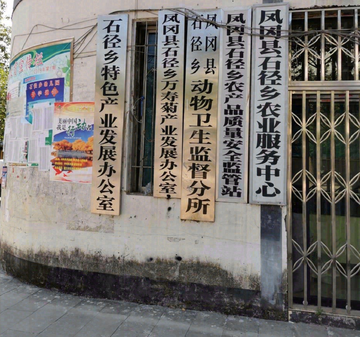 石径乡特色产业发展办公室
凤冈县石径乡万寿菊产业发展办公室
凤冈县
石径乡
动物卫生监督分所
凤冈县石径乡农产品质量安全监管站
凤冈县石径乡农业服务中心